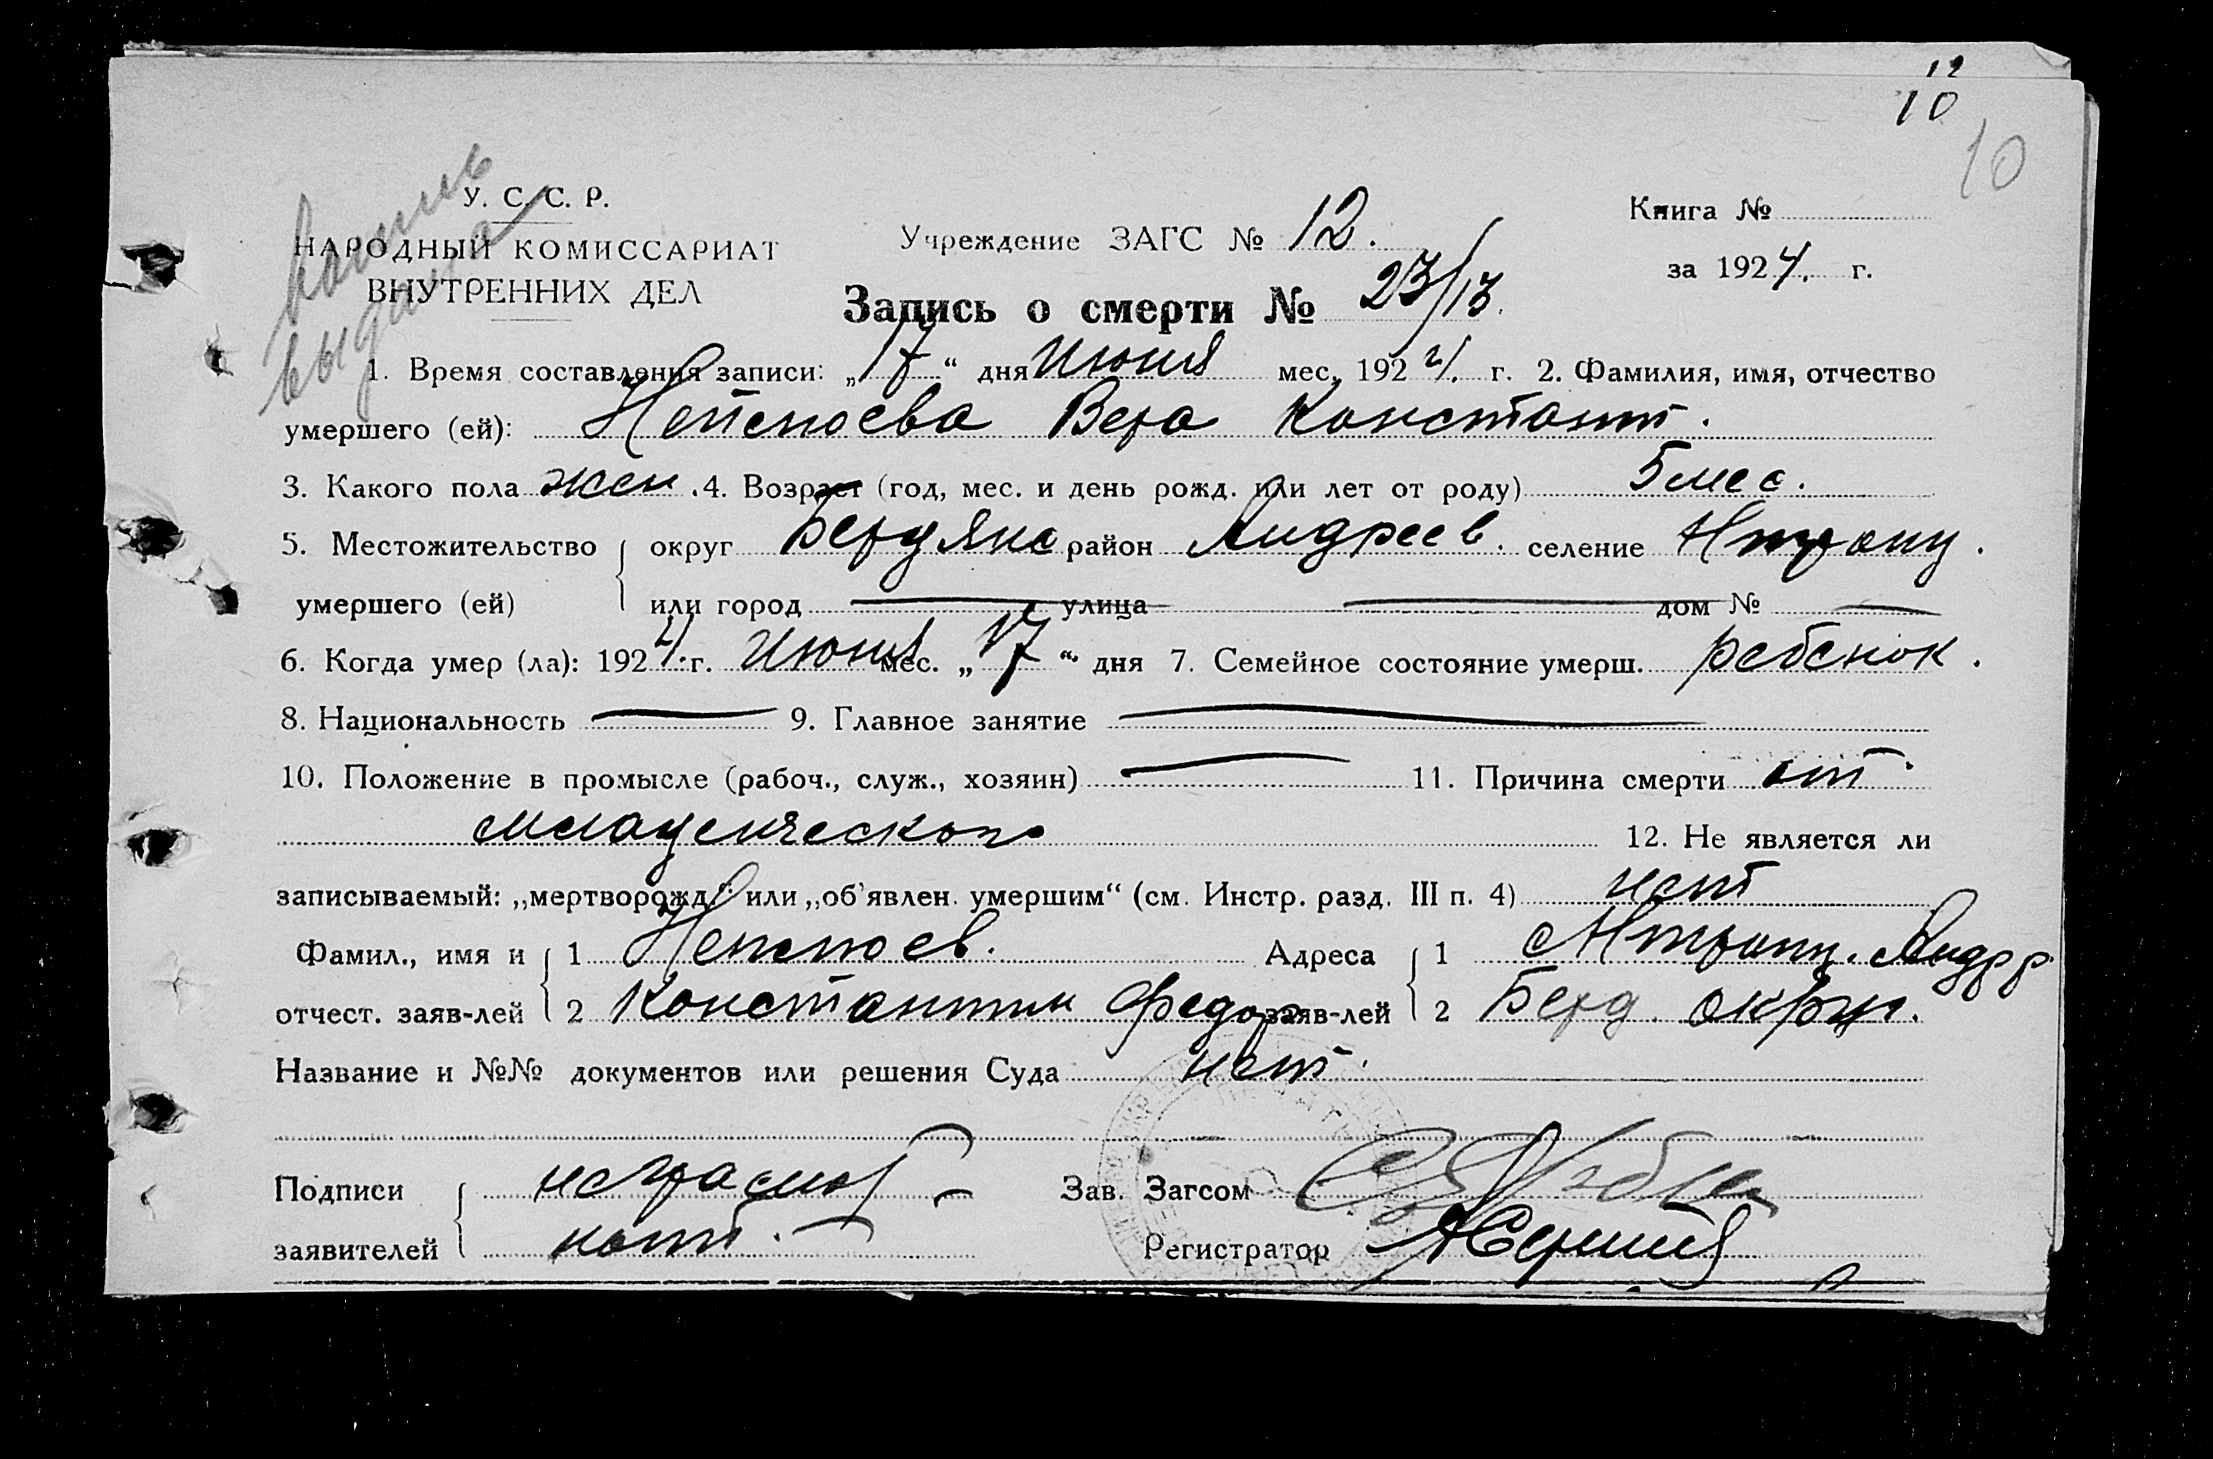 12
10
10
копия
выдана
У. С. С. Р.
НАРОДНЫЙ КОМИССАРИАТ
ВНУТРЕННИХ ДЕЛ
Учреждение ЗАГС № 12.
Книга №
за 1924. г.
Запись о смерти № 23/13.
1. Время составления записи: „17“ дня Июня мес. 1924. г. 2. Фамилия, имя, отчество
умершего (ей): Вера Констант.
3. Какого пола жен. 4. Возраст (год, мес. и день рожд. или лет от роду) 5 мес.
5. Местожительство округ Бердянс район Андреев. селение
умершего (ей) или город — улица — дом № —
6. Когда умер (ла): 1924. г. Июня мес. „17“ дня 7. Семейное состояние умерш. ребенок.
8. Национальность — 9. Главное занятие —
10. Положение в промысле (рабоч., служ., хозяин) — 11. Причина смерти от
младенческого 12. Не является ли
записываемый: „мертворожд.“ или „об'явлен. умершим“ (см. Инстр. разд. III п. 4) нет
Фамил., имя и 1 Адреса 1 Андр р.
отчест. заяв-лей 2 Константин Федор заяв-лей 2 Берд. окр.
Название и №№ документов или решения Суда нет.
Подписи неграмот Зав. Загсом
заявителей Регистратор